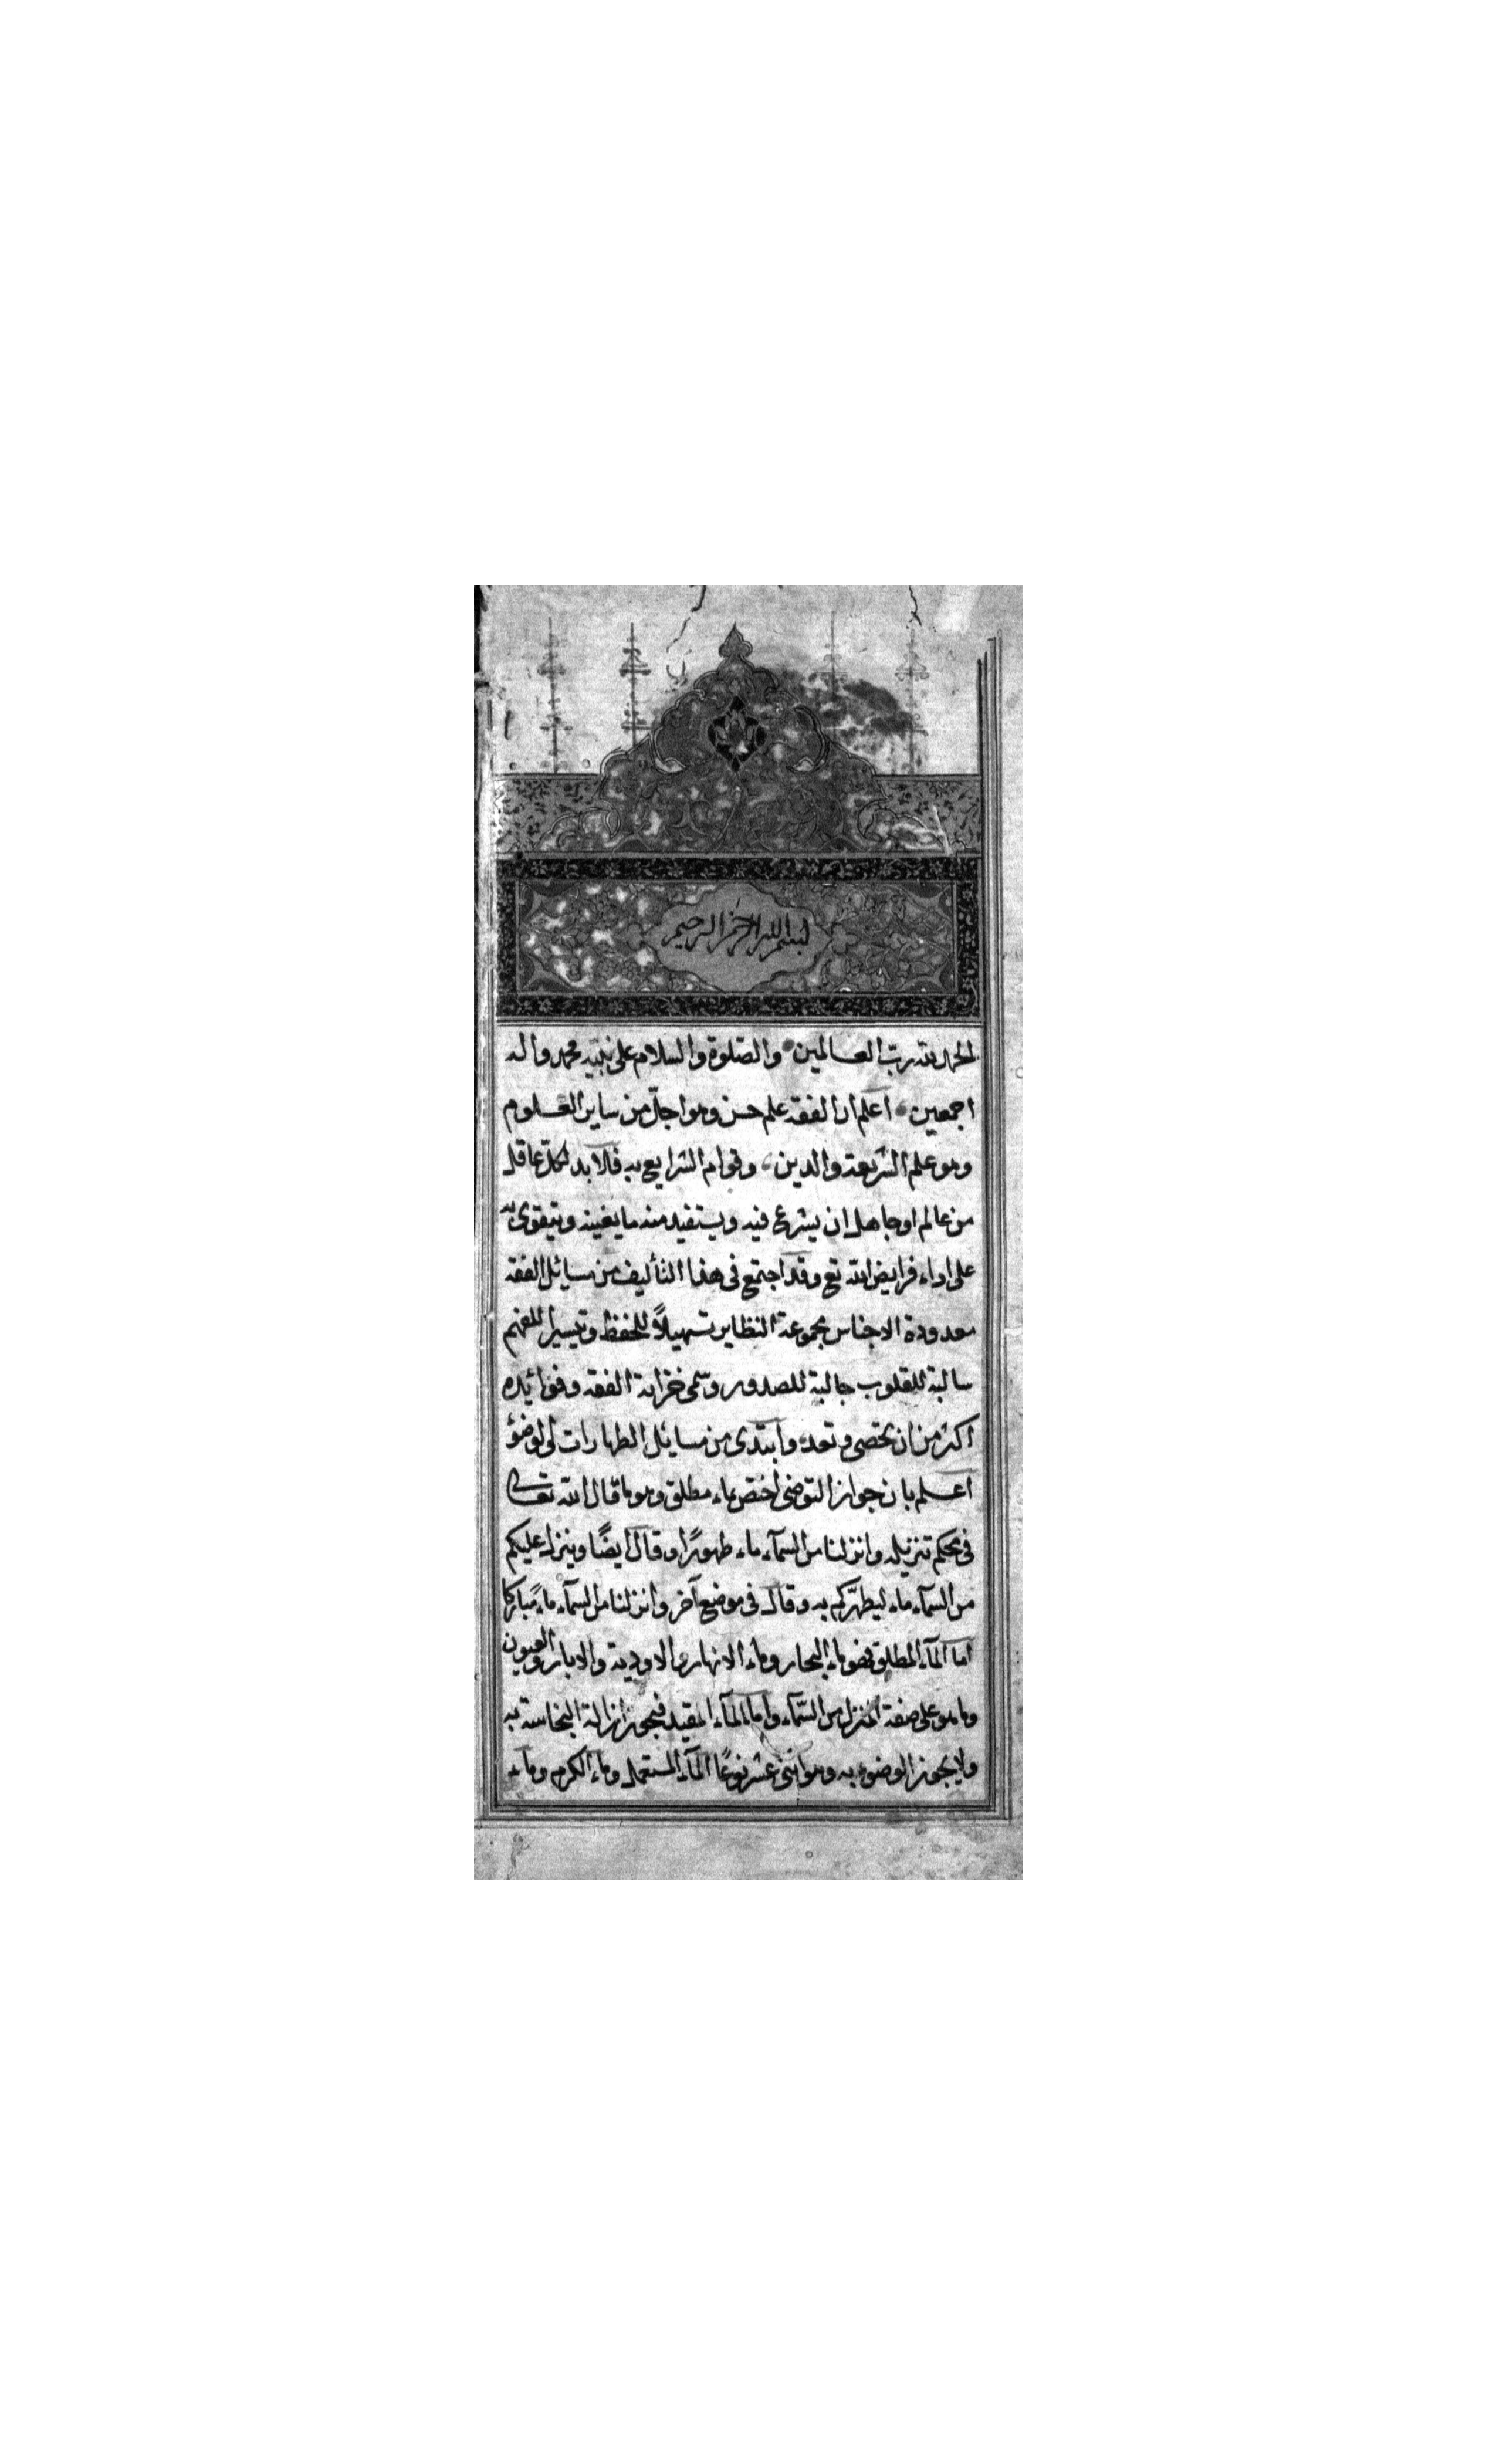 بسم الله الرحمن الرحيم
الحمد لله ربّ العالمين والصّلوة والسلام على نبيّه محمد واله
اجمعين اعلم ان الفقه علم حسن وهو اجلّ من ساير العلوم
وهو علم الشريعة والدين وقوام الشرايع به فلا بد لكل عاقل
من عالم او جاهل ان يشرع فيه ويستفيد منه ما يغنيه ويتقوى به
على اداء فرايض الله تع وقد اجتمع فى هذا التأليف من مسائل الفقه
معدودة الاجناس مجموعة النظاير تسهيلاً للحفظ وتيسيرا للفهم
سالبة للقلوب جالبة للصدور وسمّى خزانة الفقه وفوائده
اكثر من ان تحصى وتعد وابتدى من مسائل الطهارات لى الوضؤ
اعلم بان جواز التوضى اختص بماء مطلق وهو ما قال الله تعالى
فى محكم تنزيله وانزلنا من السمآء ماء طهورًا وقال ايضًا وينزل عليكم
من السمآء ماء ليطهّركم به وقال فى موضع آخر وانزلنا من السمآء ماءً مباركا
اما المآء المطلق فهو ماء البحار وماء الانهار والاودية والابار والعيون
وما هو على صفة المنزل من السّمآء واما المآء المقيد فيجوز ازالة النجاسة به
ولا يجوز الوضوء به وهو اثنى عشر نوعًا المآء المستعمل وماء الكرم وماء